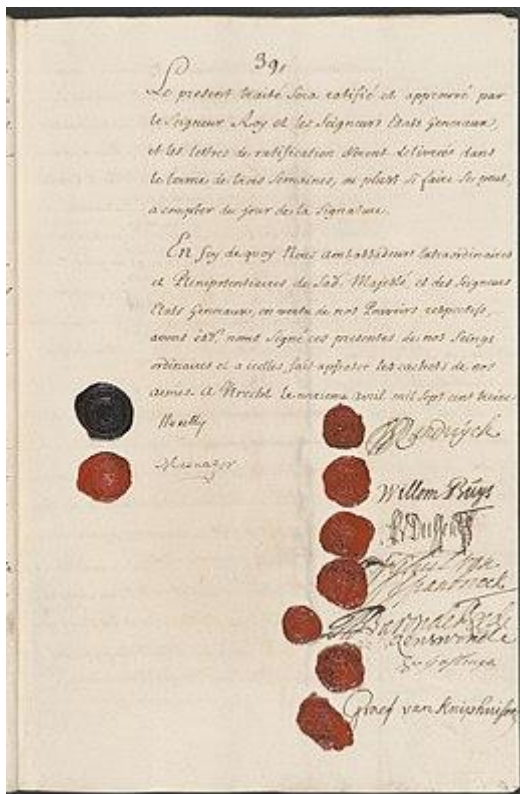 39,
Le present traité sera ratifié et approuvé par
le Seigneur Roy et les Seigneurs Etats Generaux,
et les lettres de ratification seront delivrées dans
le terme de trois semaines, ou plutt si faire se peut,
a compter du jour de la Signature.
En foy de quoy Nous ambassadeurs Extraordinaires
et Plenipotentiaires de Sad. Majesté, et des Seigneurs
Etats Generaux, en vertu de nos Pouvoirs respectifs,
avons esd. noms Signé ces presentes de nos Seings
ordinaires et a icelles fait apposer les cachets de nos
armes. A Utrecht le onzieme avril mil sept cent treize
Huxelles
Mesnager
Randwyck
Willem Buys
B v Dussen
van
Spanbroeck
Baron de Reede
Renswoude
Graef van Kniphuisen